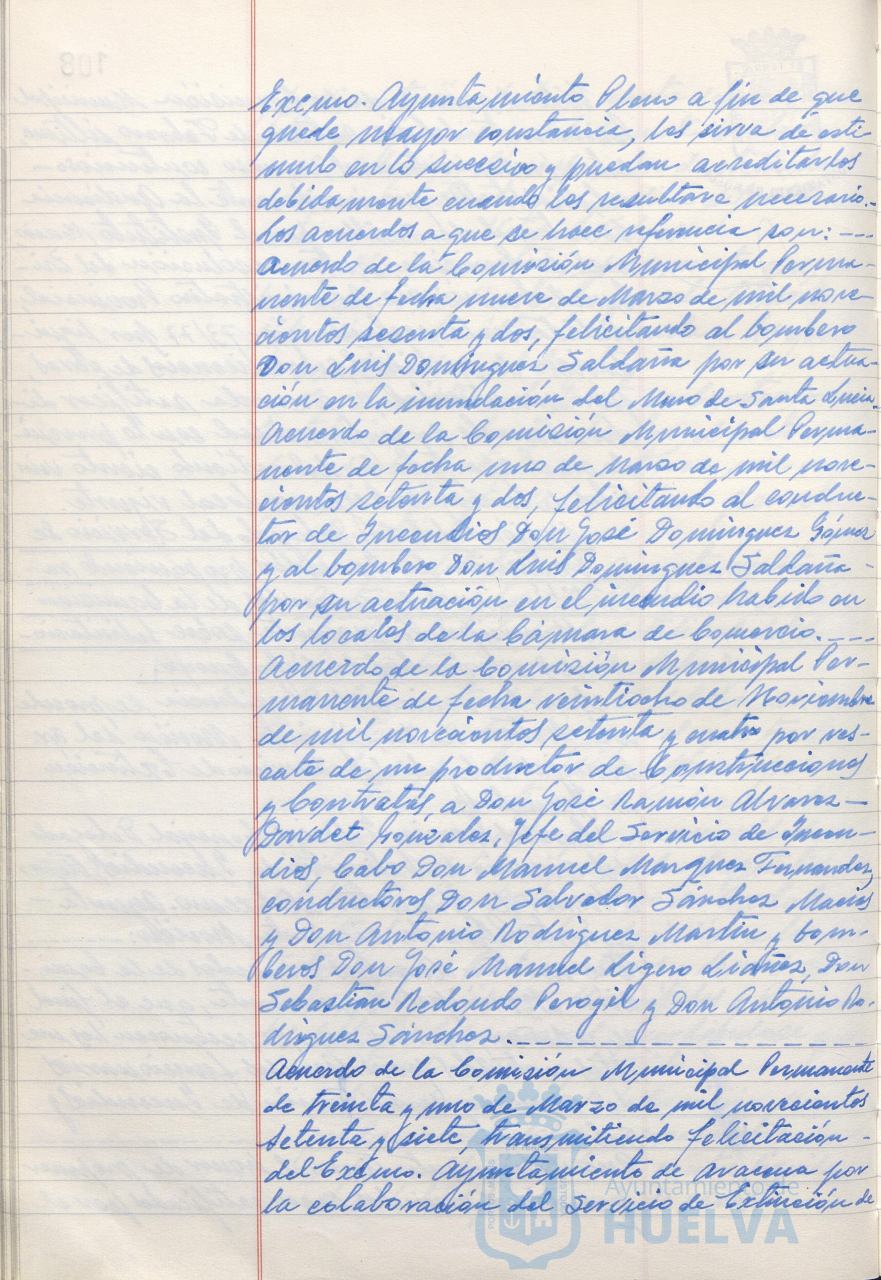 Excmo. Ayuntamiento Pleno a fin de que
quede mayor constancia, les sirva de estí
mulo en lo sucesivo y puedan acreditarlos
debidamente cuando les resultare necesario.-
Los acuerdos a que se hace referencia son: ---
Acuerdo de la Comisión Municipal Perma-
nente de fecha nueve de Marzo de mil nove-
cientos sesenta y dos, felicitando al bombero
Don Luis Domínguez Saldaña por su actua-
ción en la inundación del Muro de Santa Lucia.
Acuerdo de la Comisión Municipal Perma-
nente de fecha uno de Marzo de mil nove-
cientos setenta y dos, felicitando al conduc-
tor de Incendios Don José Domínguez Gómez
y al bombero Don Luis Domínguez Saldaña -
por su actuación en el incendio habido en
los locales de la Cámara de Comercio. ---
Acuerdo de la Comisión Municipal Per-
manente de fecha veintiocho de Noviembre
de mil novecientos setenta y cuatro por res-
cate de un productor de Construcciones
y Contratas, a Don José Ramón Alvarez-
Dardet González, Jefe del Servicio de Incen-
dios, Cabo Don Manuel Marquez Fernandez,
conductores, Don Salvador Sánchez Macías
y Don Antonio Rodríguez Martín y bom-
beros Don José Manuel Ligero Liáñez, Don
Sebastian Redondo Perogil y Don Antonio Ro-
dríguez Sánchez. ---------------
Acuerdo de la Comisión Municipal Permanente
de treinta y uno de Marzo de mil novecientos
setenta y siete, transmitiendo felicitación -
del Excmo. Ayuntamiento de Aracena por
la colaboración del Servicio de Extinción de
Ayuntamiento de
HUELVA
108